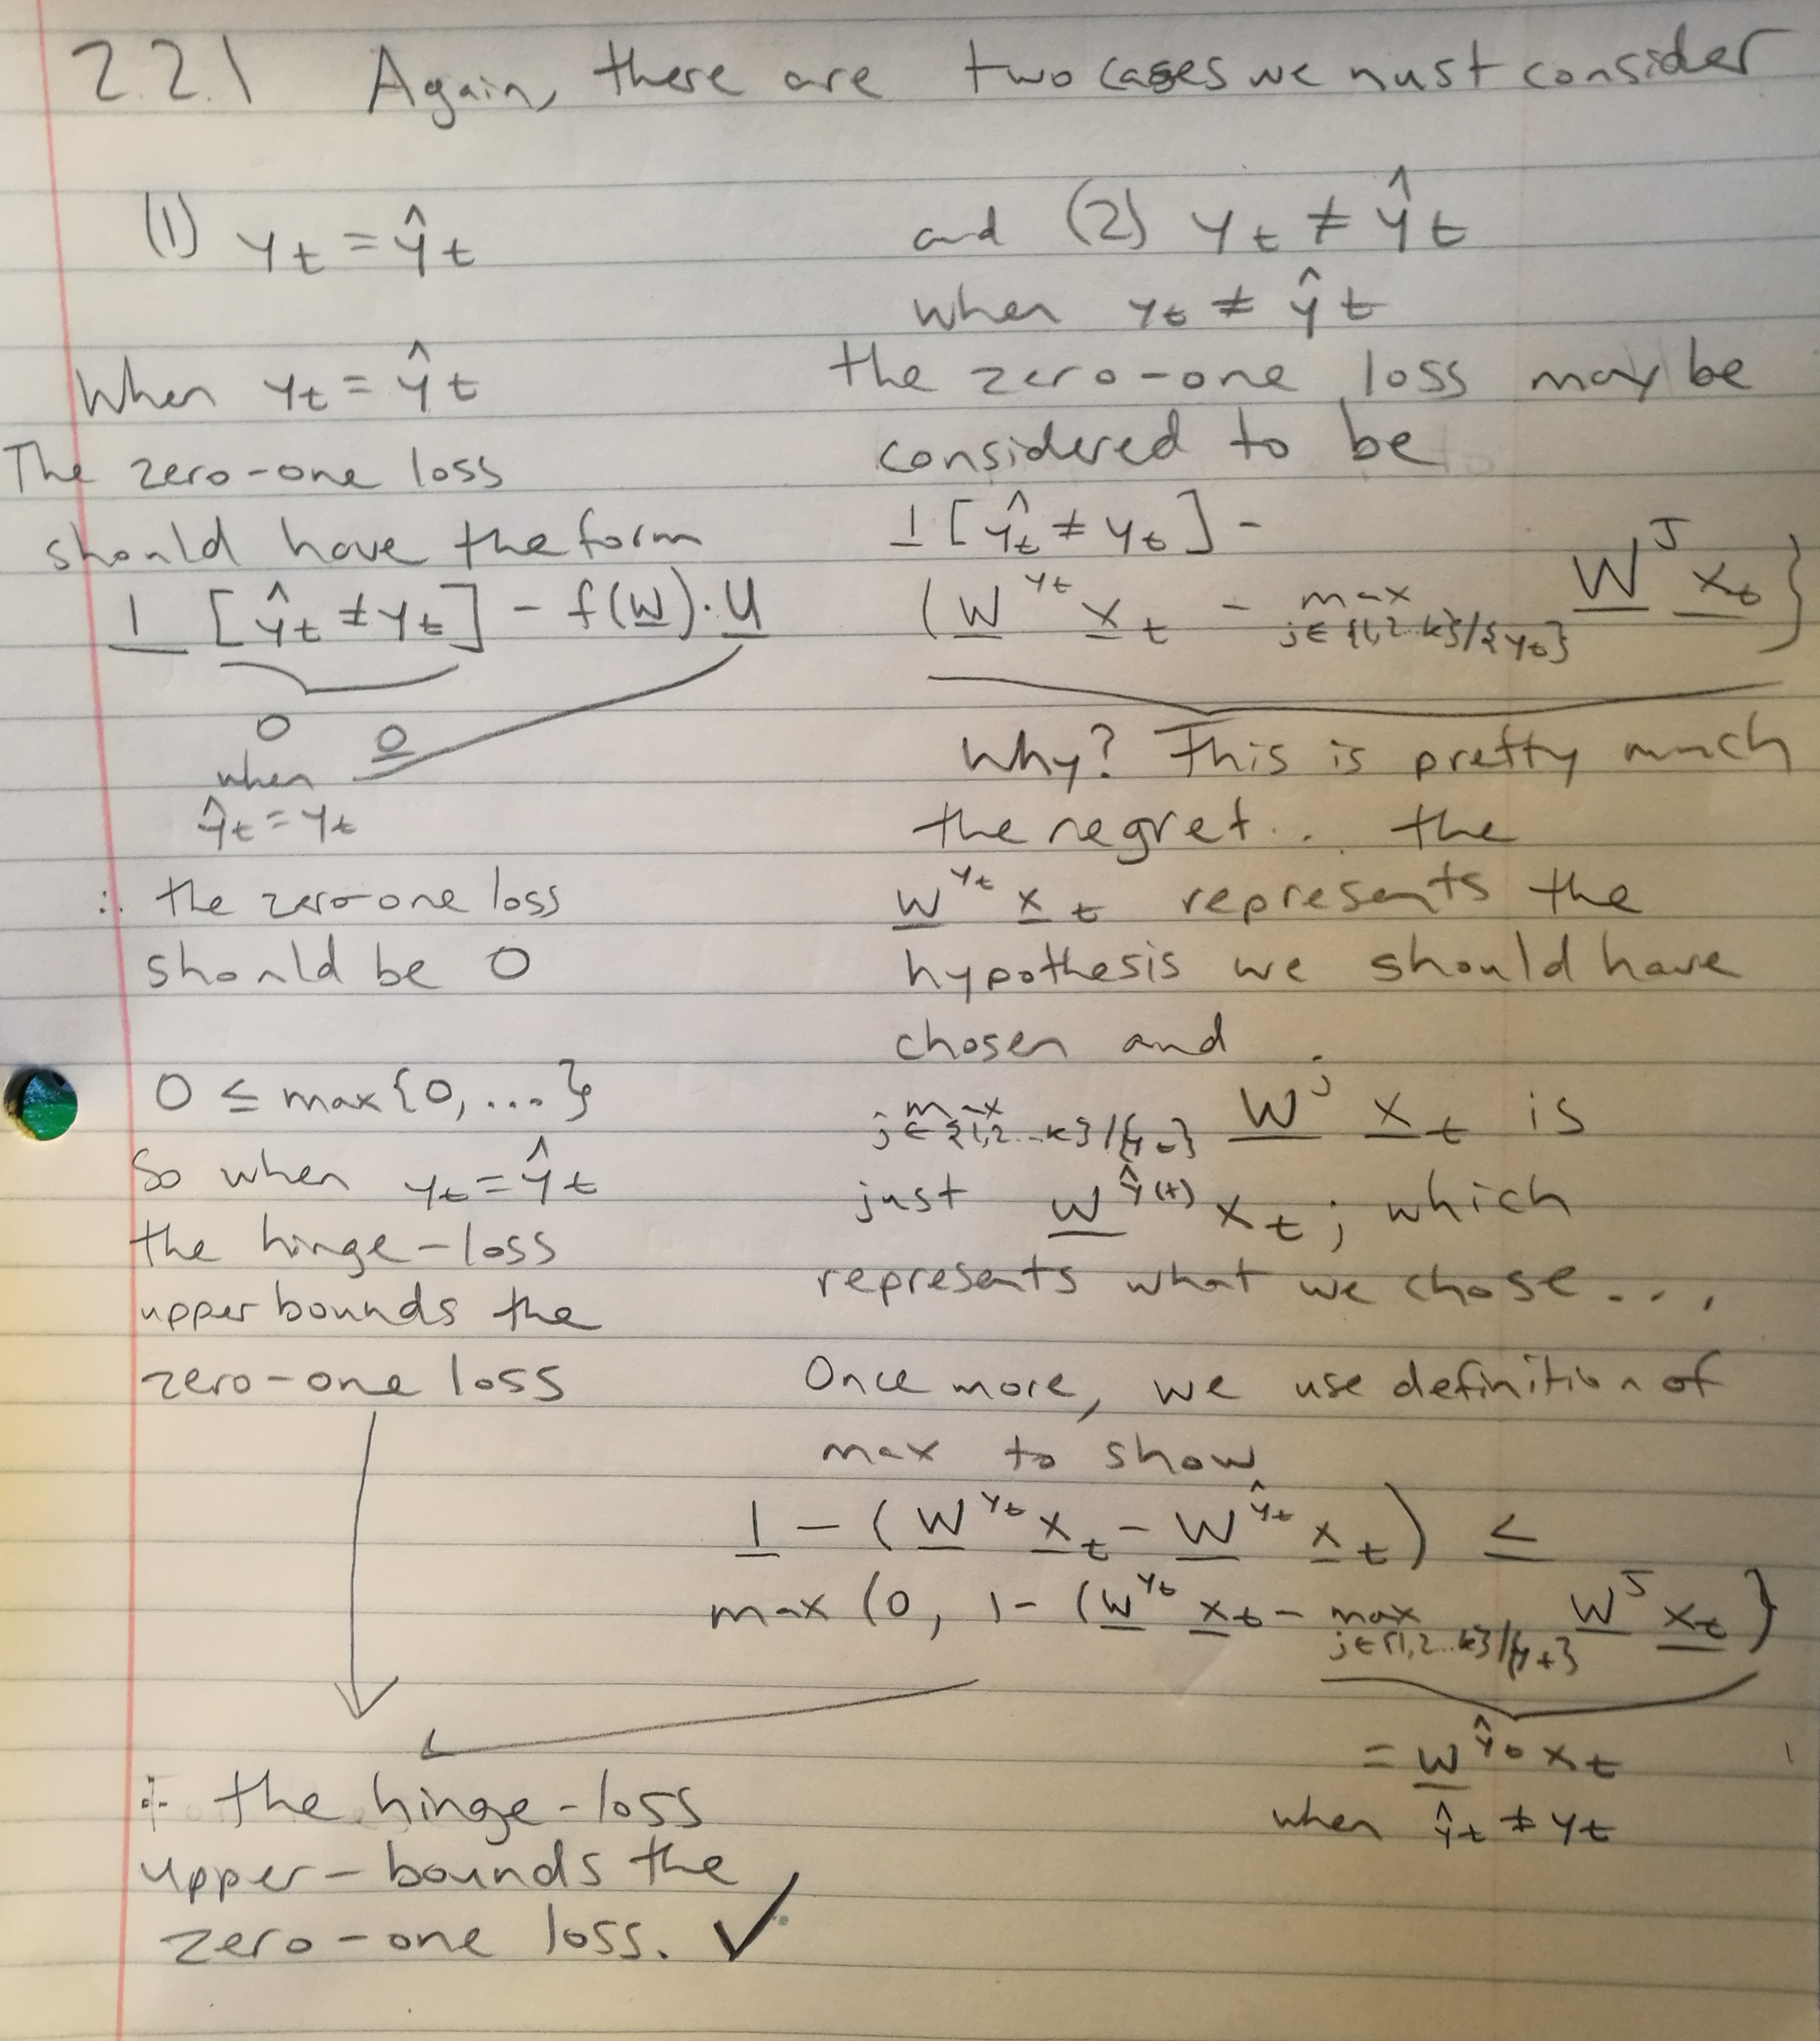 2.2.1 Again, there are two cases we must consider
(1) yt = ŷt
When yt = ŷt
The zero-one loss
should have the form
1 [ŷt ≠ yt] - f(W).U
0
0
when
ŷt = yt
∴ the zero-one loss
should be 0
0 ≤ max{0, ...}
So when yt = ŷt
the hinge-loss
upper bounds the
zero-one loss
and (2) yt ≠ ŷt
when yt ≠ ŷt
the zero-one loss may be
considered to be
1 [ŷt ≠ yt] -
(W^yt xt - max j∈{1,2..k}/{yt} W^J xt}
Why? This is pretty much
the regret.. the
W^yt xt represents the
hypothesis we should have
chosen and
max j∈{1,2...k}/{yt} W^j xt is
just W^ŷ(t) xt; which
represents what we chose....
Once more, we use definition of
max to show
1 - (W^yt xt - W^ŷt xt) ≤
max (0, 1- (W^yt xt - max j∈{1,2..k}/{yt} W^J xt}
= W^ŷt xt
when ŷt ≠ yt
∴ the hinge-loss
upper-bounds the
zero-one loss. ✓